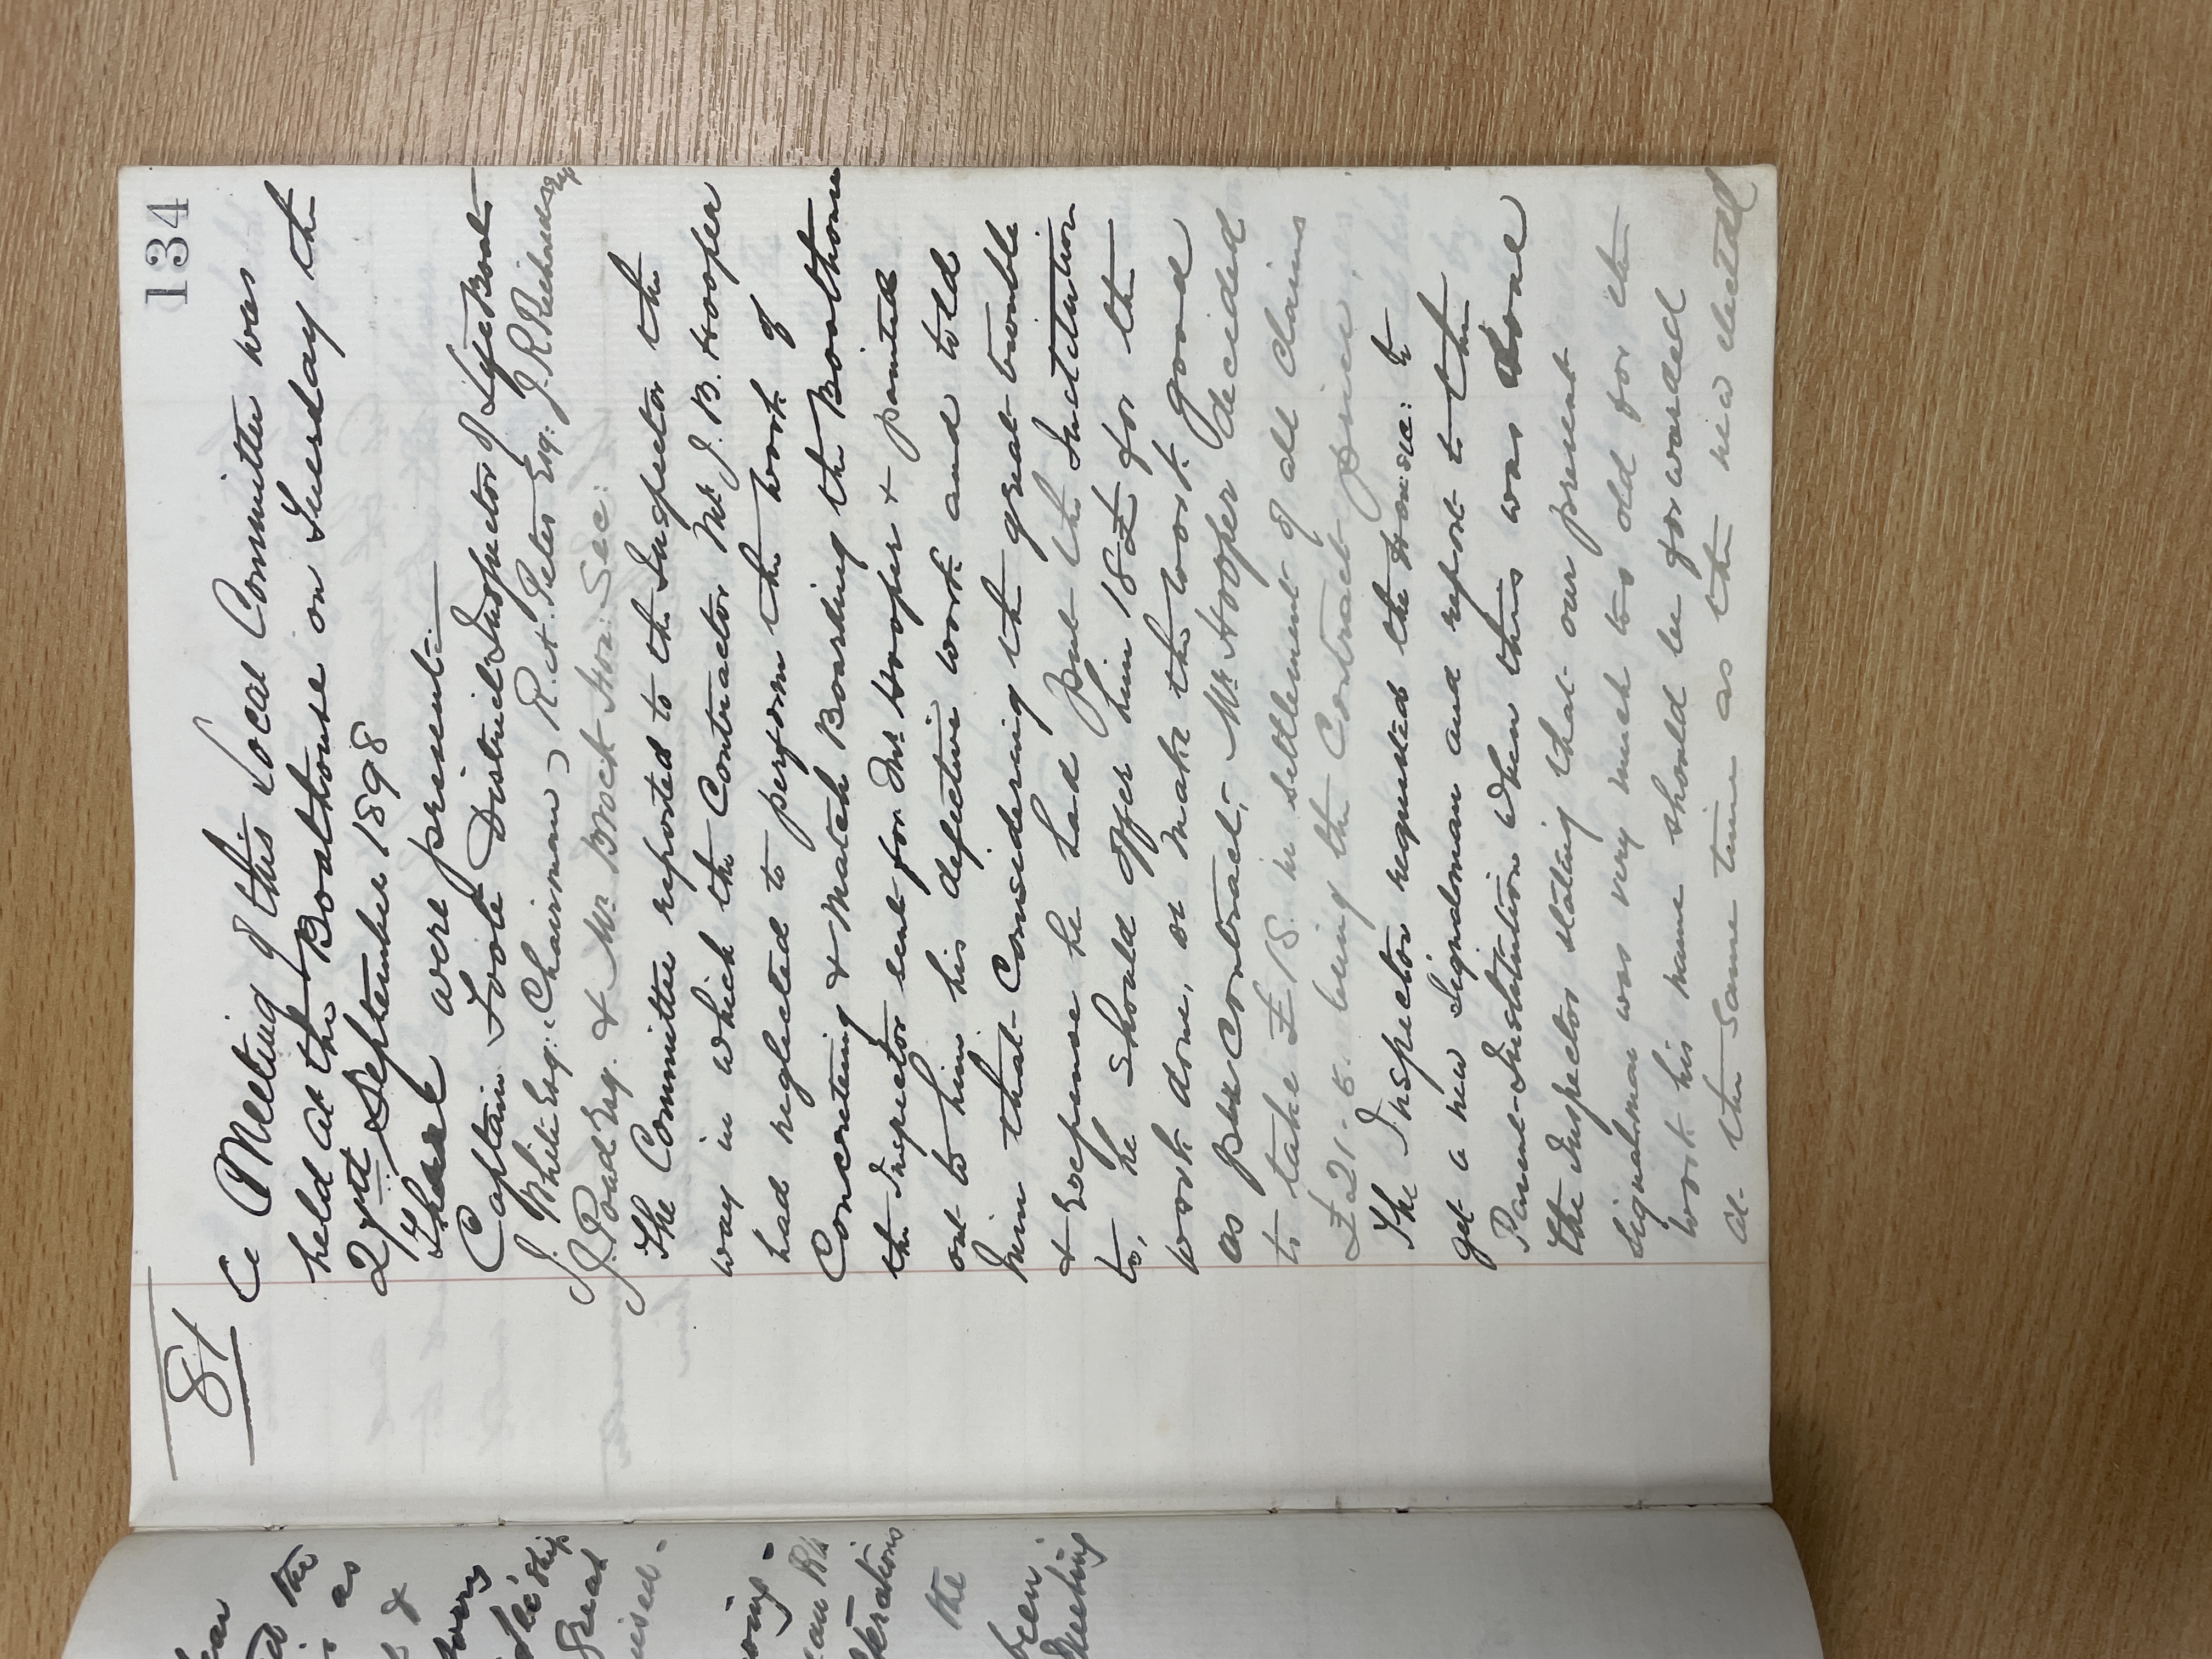 134
81
A Meeting of this Local Committee was
held at the Boathouse on Tuesday the
27th September 1898
There were present:—
Captain Foote District Inspector of Life Boats
J. White Esq: (Chairman) R. H. Peter Esq. J. R. Richards Esq
J. Poad Esq. & Mr Brock Hon: Sec:
The Committee reported to the Inspector the
way in which the Contractor Mr J. B. Hooper
had neglected to perform the work of
Concreting & Match Boarding the Boathouse
the Inspector sent for Mr Hooper & pointed
out to him his defective work and told
him that considering the great trouble
& Expense he had put the Institution
to, he should offer him 18£ for the
work done, or make the work good
as per Contract;- Mr Hooper decided
to take £18 in settlement of all claims
£21.-5. being the Contract price,
The Inspector requested the Hon: sec: to
get a new Signalman and report to the
Parent-Institution when this was done
the Inspector stating that our present
signalman was very much too old for the
work his name should be forwarded
at the same time as the new elected
ean
the
as
&
overy
Great
owing-
the
been
Meeting